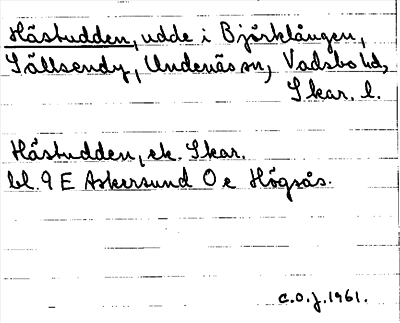 Hästudden, udde i Björklången,
Sällsendy, Undenäs sn, Vadsbo hd,
Skar. l.
Hästudden, ek. Skar.
bl. 9 E Askersund O e Högsås.
C.O.J. 1961.